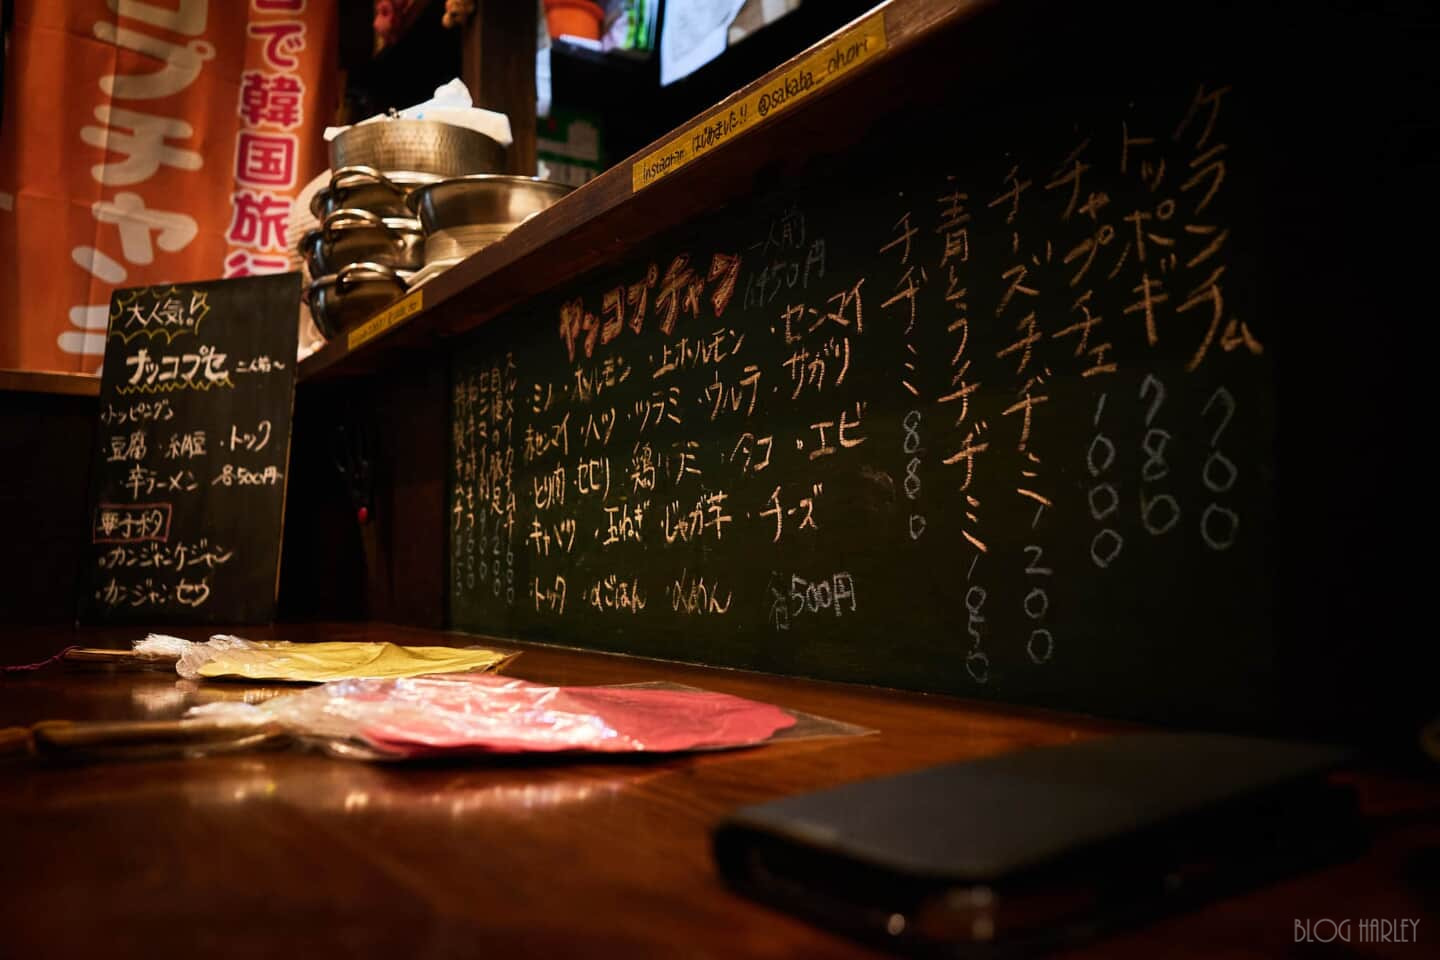 コプチャン
で韓国旅行
大人気!!
ナッコプセ 二人前～
・トッピング
・豆腐 ・納豆 ・トック
・辛ラーメン 各500円
・カンジャンケジャン
・カンジャンセウ
instagram はじめました!! @sakaba_ohori
ヤンコプチャン 一人前 1,450円
・ミノ ・ホルモン ・上ホルモン ・センマイ
・赤センマイ ・ハツ ・ツラミ ・ウルテ ・サガリ
・とり肉 ・セセリ ・鶏ハラミ ・タコ ・エビ
・キャベツ ・玉ねぎ ・じゃが芋 ・チーズ
・トック ・〆ごはん ・〆めん 各500円
・チヂミ 880
・青とうチヂミ 1080
・チーズチヂミ 1200
・チャプチェ 1000
・トッポギ 780
・ケランチム 700
BLOG HARLEY